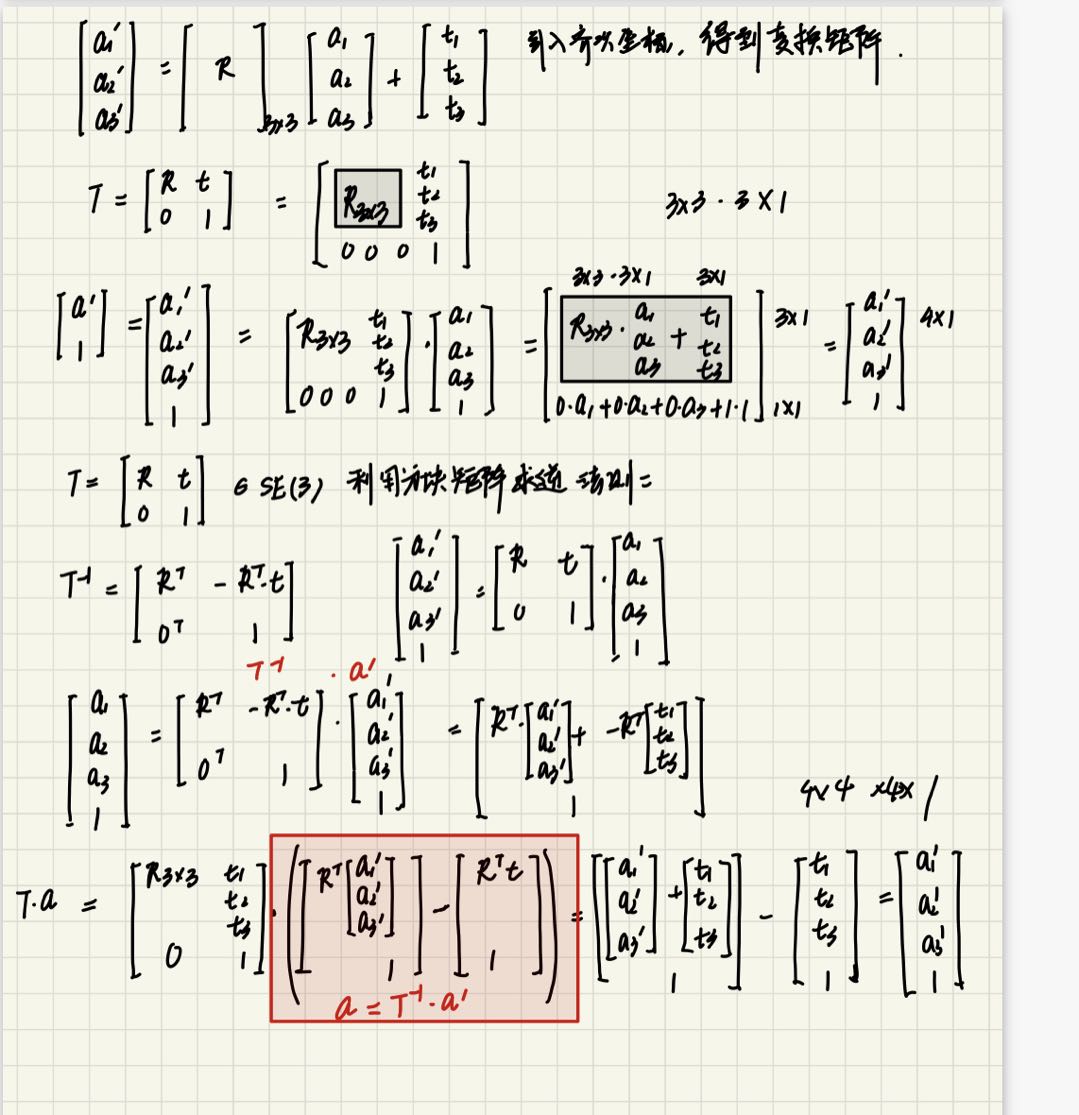 [a₁' a₂' a₃'] = [R]₃ₓ₃ [a₁ a₂ a₃] + [t₁ t₂ t₃] 引入齐次坐标, 得到变换矩阵.
T = [R t; 0 1] = [R₃ₓ₃ t₁ t₂ t₃; 0 0 0 1] 3×3 · 3×1
3×3 · 3×1 3×1
[a'; 1] = [a₁'; a₂'; a₃'; 1] = [R₃ₓ₃ t₁ t₂ t₃; 0 0 0 1] · [a₁; a₂; a₃; 1] = [R₃ₓ₃ · a₁ a₂ a₃ + t₁ t₂ t₃; 0·a₁+0·a₂+0·a₃+1·1] 3×1 1×1 = [a₁'; a₂'; a₃'; 1] 4×1
T = [R t; 0 1] ∈ SE(3) 利用分块矩阵求逆法则=
T⁻¹ = [Rᵀ -Rᵀ·t; 0ᵀ 1] [a₁'; a₂'; a₃'; 1] = [R t; 0 1] · [a₁; a₂; a₃; 1]
T⁻¹ · a'
[a₁; a₂; a₃; 1] = [Rᵀ -Rᵀ·t; 0ᵀ 1] · [a₁'; a₂'; a₃'; 1] = [Rᵀ·[a₁'; a₂'; a₃'] + -Rᵀ[t₁; t₂; t₃]; 1]
4×4 ×4×1
T·a = [R₃ₓ₃ t₁ t₂ t₃; 0 1] · ([Rᵀ[a₁'; a₂'; a₃']; 1] - [Rᵀt; 1]) = [[a₁'; a₂'; a₃'] + [t₁; t₂; t₃]; 1] - [t₁; t₂; t₃; 1] = [a₁'; a₂'; a₃'; 1]
a = T⁻¹·a'